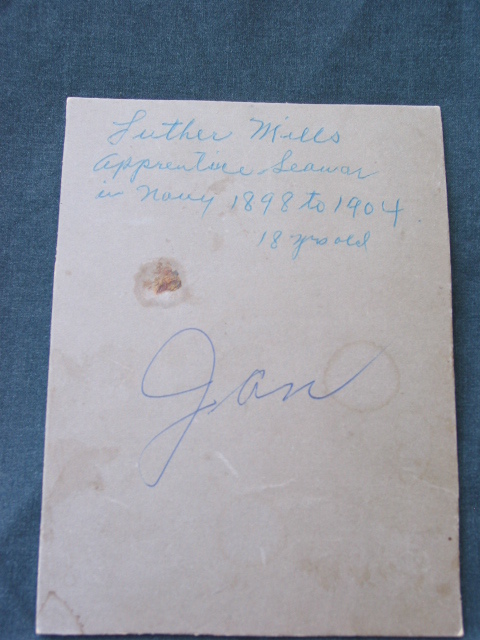 Luther Mills
Apprentice Seaman
in Navy 1898 to 1904
18 yrs old
Jan